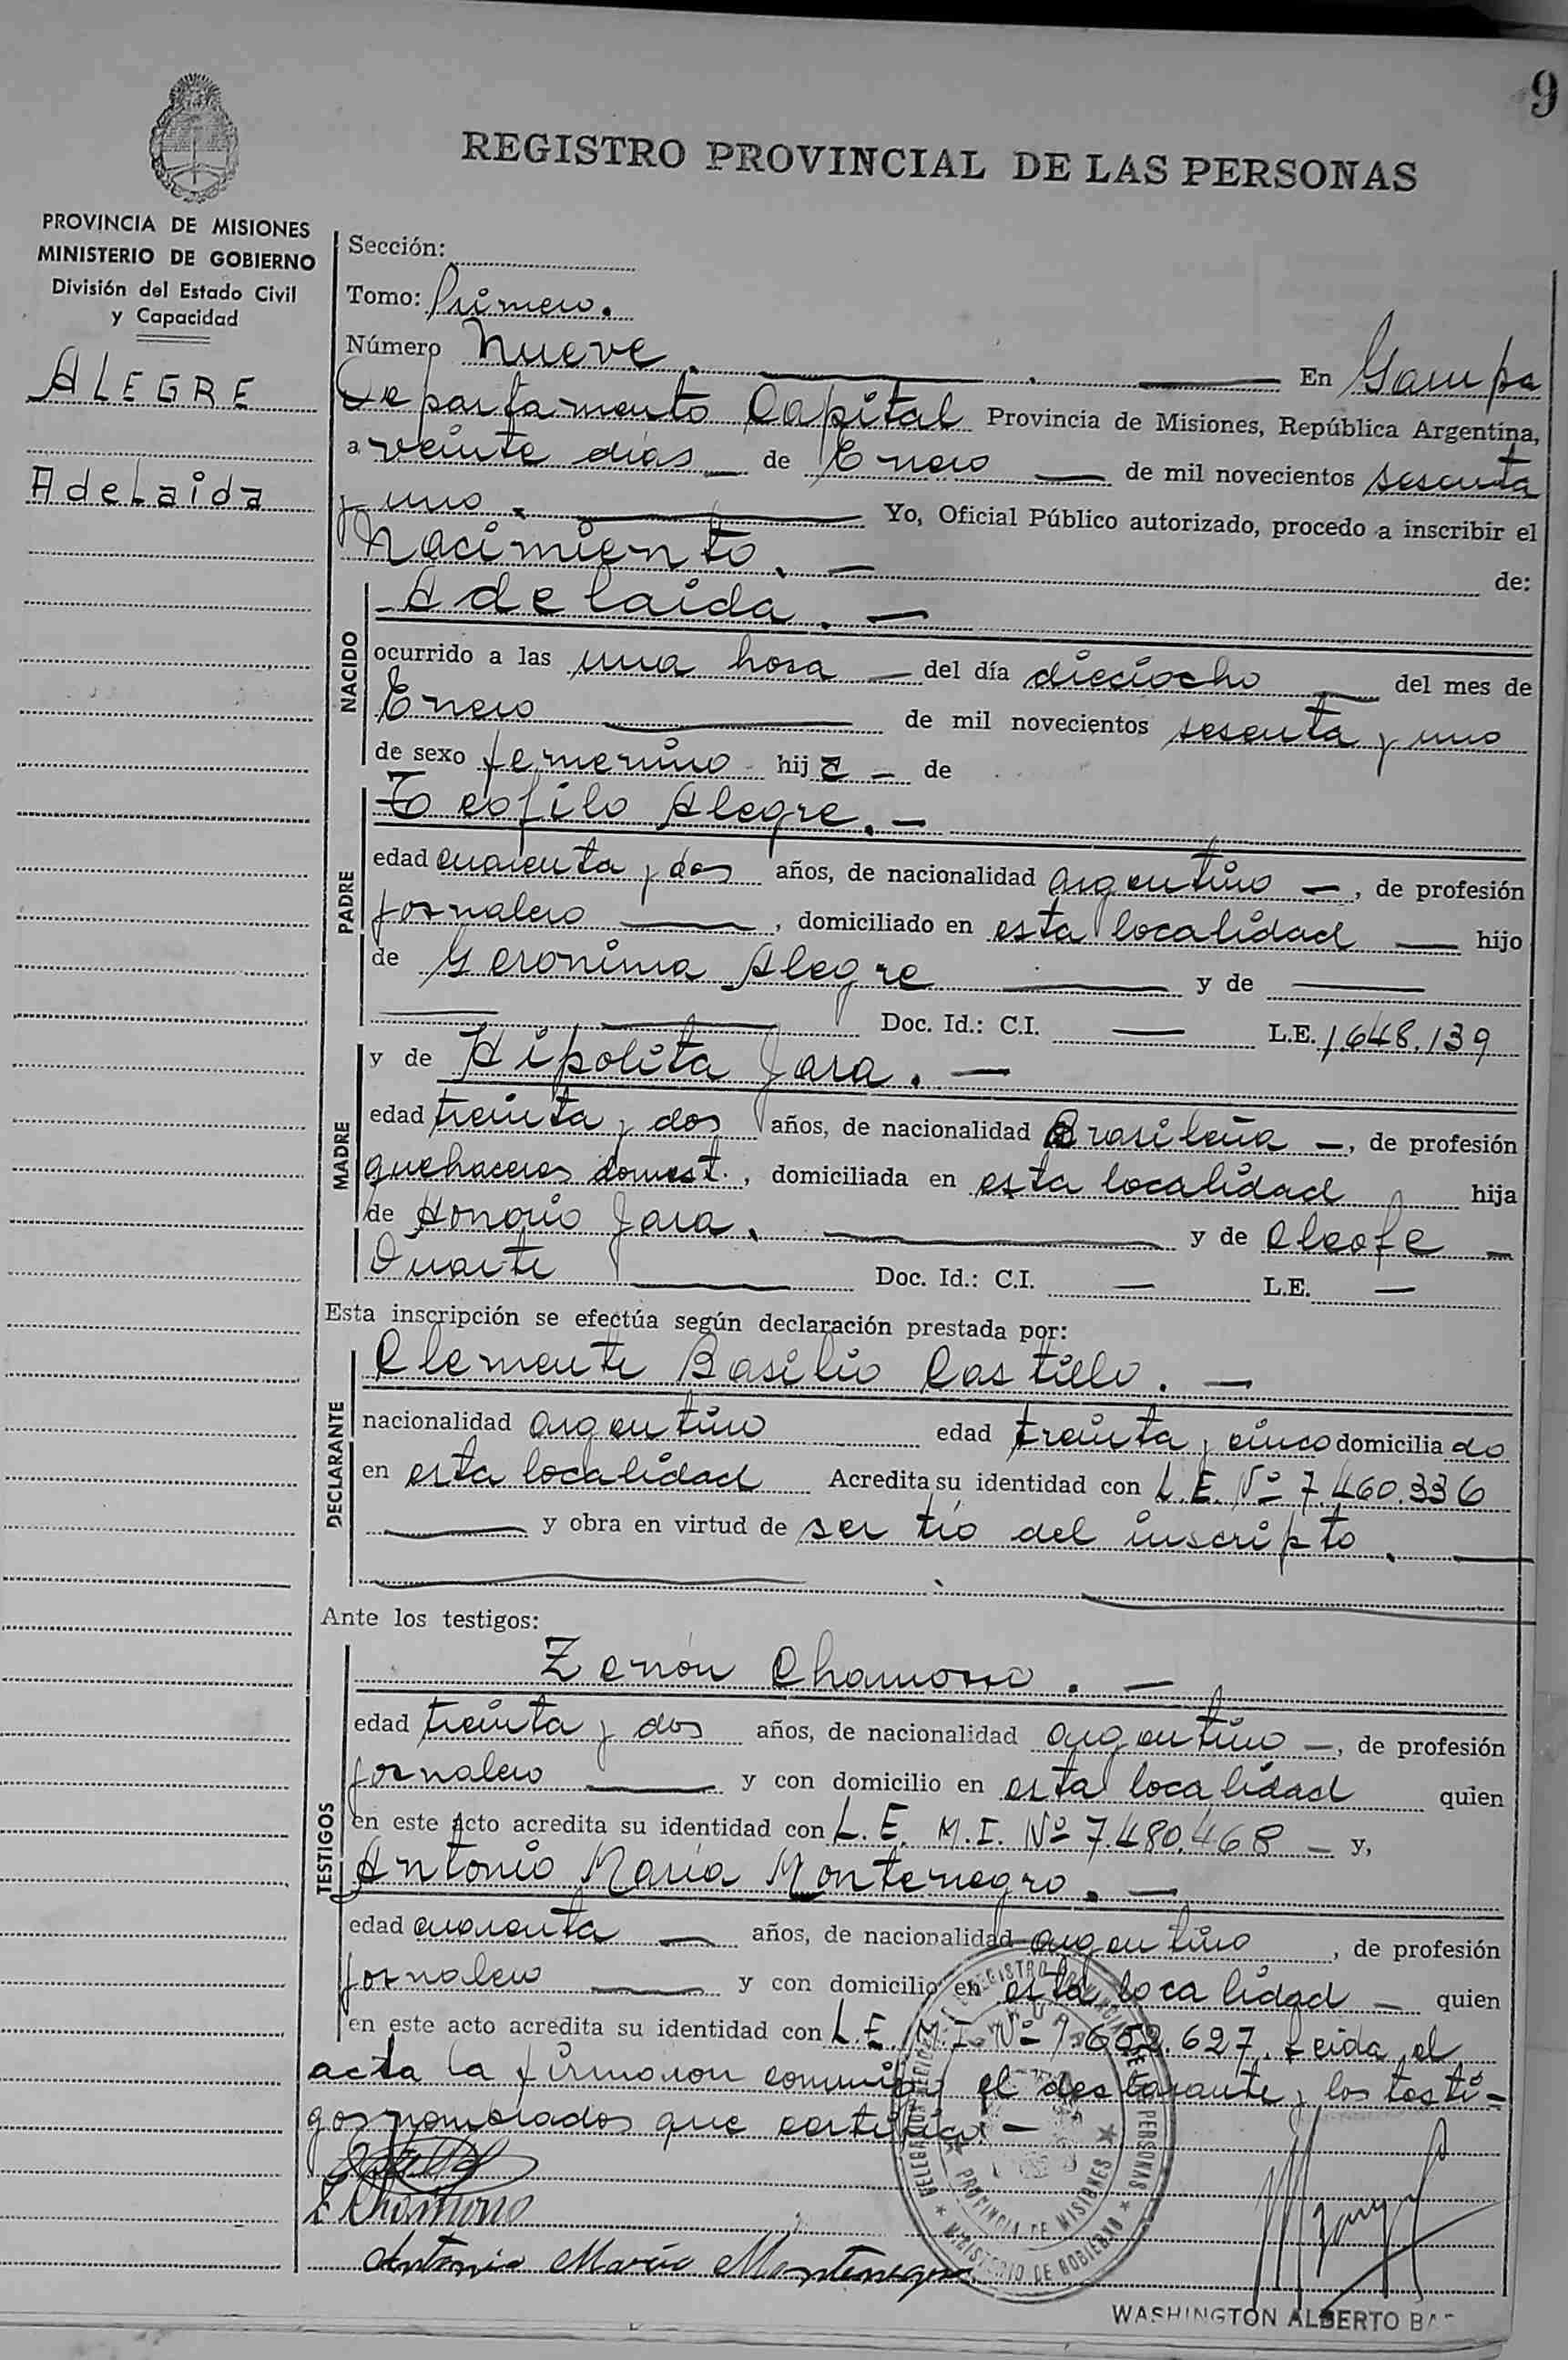 9
REGISTRO PROVINCIAL DE LAS PERSONAS
PROVINCIA DE MISIONES
MINISTERIO DE GOBIERNO
División del Estado Civil
y Capacidad
ALEGRE
Adelaida
Sección:
Tomo: Primero.
Número Nueve. En Garupa
Departamento Capital Provincia de Misiones, República Argentina,
a veinte días de Enero de mil novecientos sesenta
y uno. Yo, Oficial Público autorizado, procedo a inscribir el
Nacimiento. de:
NACIDO
Adelaida.
ocurrido a las una hora del día dieciocho del mes de
Enero de mil novecientos sesenta y uno
de sexo femenino hija de
PADRE
Teofilo Alegre.
edad cuarenta y dos años, de nacionalidad argentino, de profesión
jornalero, domiciliado en esta localidad hijo
de Geronima Alegre y de
Doc. Id.: C.I. L.E. 1.648.139
MADRE
y de Hipolita Jara.
edad treinta y dos años, de nacionalidad Brasileña, de profesión
quehaceres domest., domiciliada en esta localidad hija
de Honorio Jara. y de Cleofe
Duarte Doc. Id.: C.I. L.E.
Esta inscripción se efectúa según declaración prestada por:
DECLARANTE
Clemente Basilio Castillo.
nacionalidad argentino edad treinta y cinco domiciliado
en esta localidad Acredita su identidad con L.E. Nº 7.460.336
y obra en virtud de ser tío del inscripto.
Ante los testigos:
TESTIGOS
Zenón Chamorro.
edad treinta y dos años, de nacionalidad argentino, de profesión
jornalero y con domicilio en esta localidad quien
en este acto acredita su identidad con L.E. M.I. Nº 7.480.468 y,
Antonio María Montenegro.
edad cuarenta años, de nacionalidad argentino, de profesión
jornalero y con domicilio en esta localidad quien
en este acto acredita su identidad con L.E. M.I. Nº 1.652.627. Leida el
acta la firmaron conmigo el declarante y los testi-
gos nombrados que certifico.
Z Chamorro
Antonio María Montenegro
PROVINCIA DE MISIONES
MINISTERIO DE GOBIERNO
WASHINGTON ALBERTO